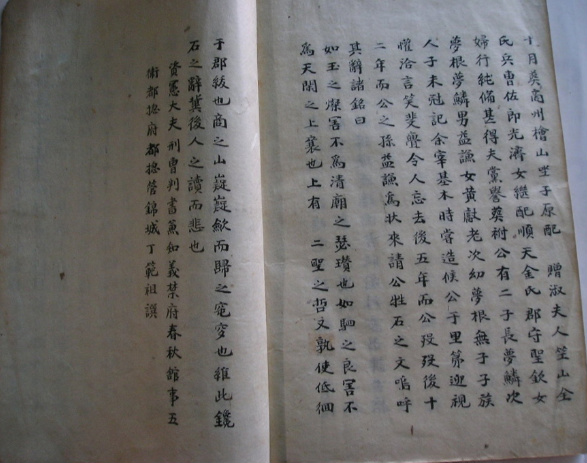 十月葬商州檜山坐子原配 贈淑夫人竺山全
氏兵曹佐郎光濟女繼配順天金氏郡守聖欽女
婦行純備甚得夫黨譽葬祔公有二子長夢鱗次
夢根夢鱗男益謙女黃獻老次幼夢根無子子族
人子未冠記余宰基木時嘗造候公于里第迎視
懽洽言笑斐亹令人忘去後五年而公歿歿後十
二年而公之孫益謙爲狀來請公牲石之文嗚呼
其辭諸銘曰
如玉之溫害不爲清廟之瑟瓚也如駟之良害不
爲天閑之上襄也上有 二聖之哲又孰使低徊
于郡紱也商之山嶷嶷歛而歸之竁穸也雖此鑱
石之辭冀後人之讀而悲也
資憲大夫刑曹判書兼知義禁府春秋館事五
衛都捴府都捴管錦城丁範祖譔